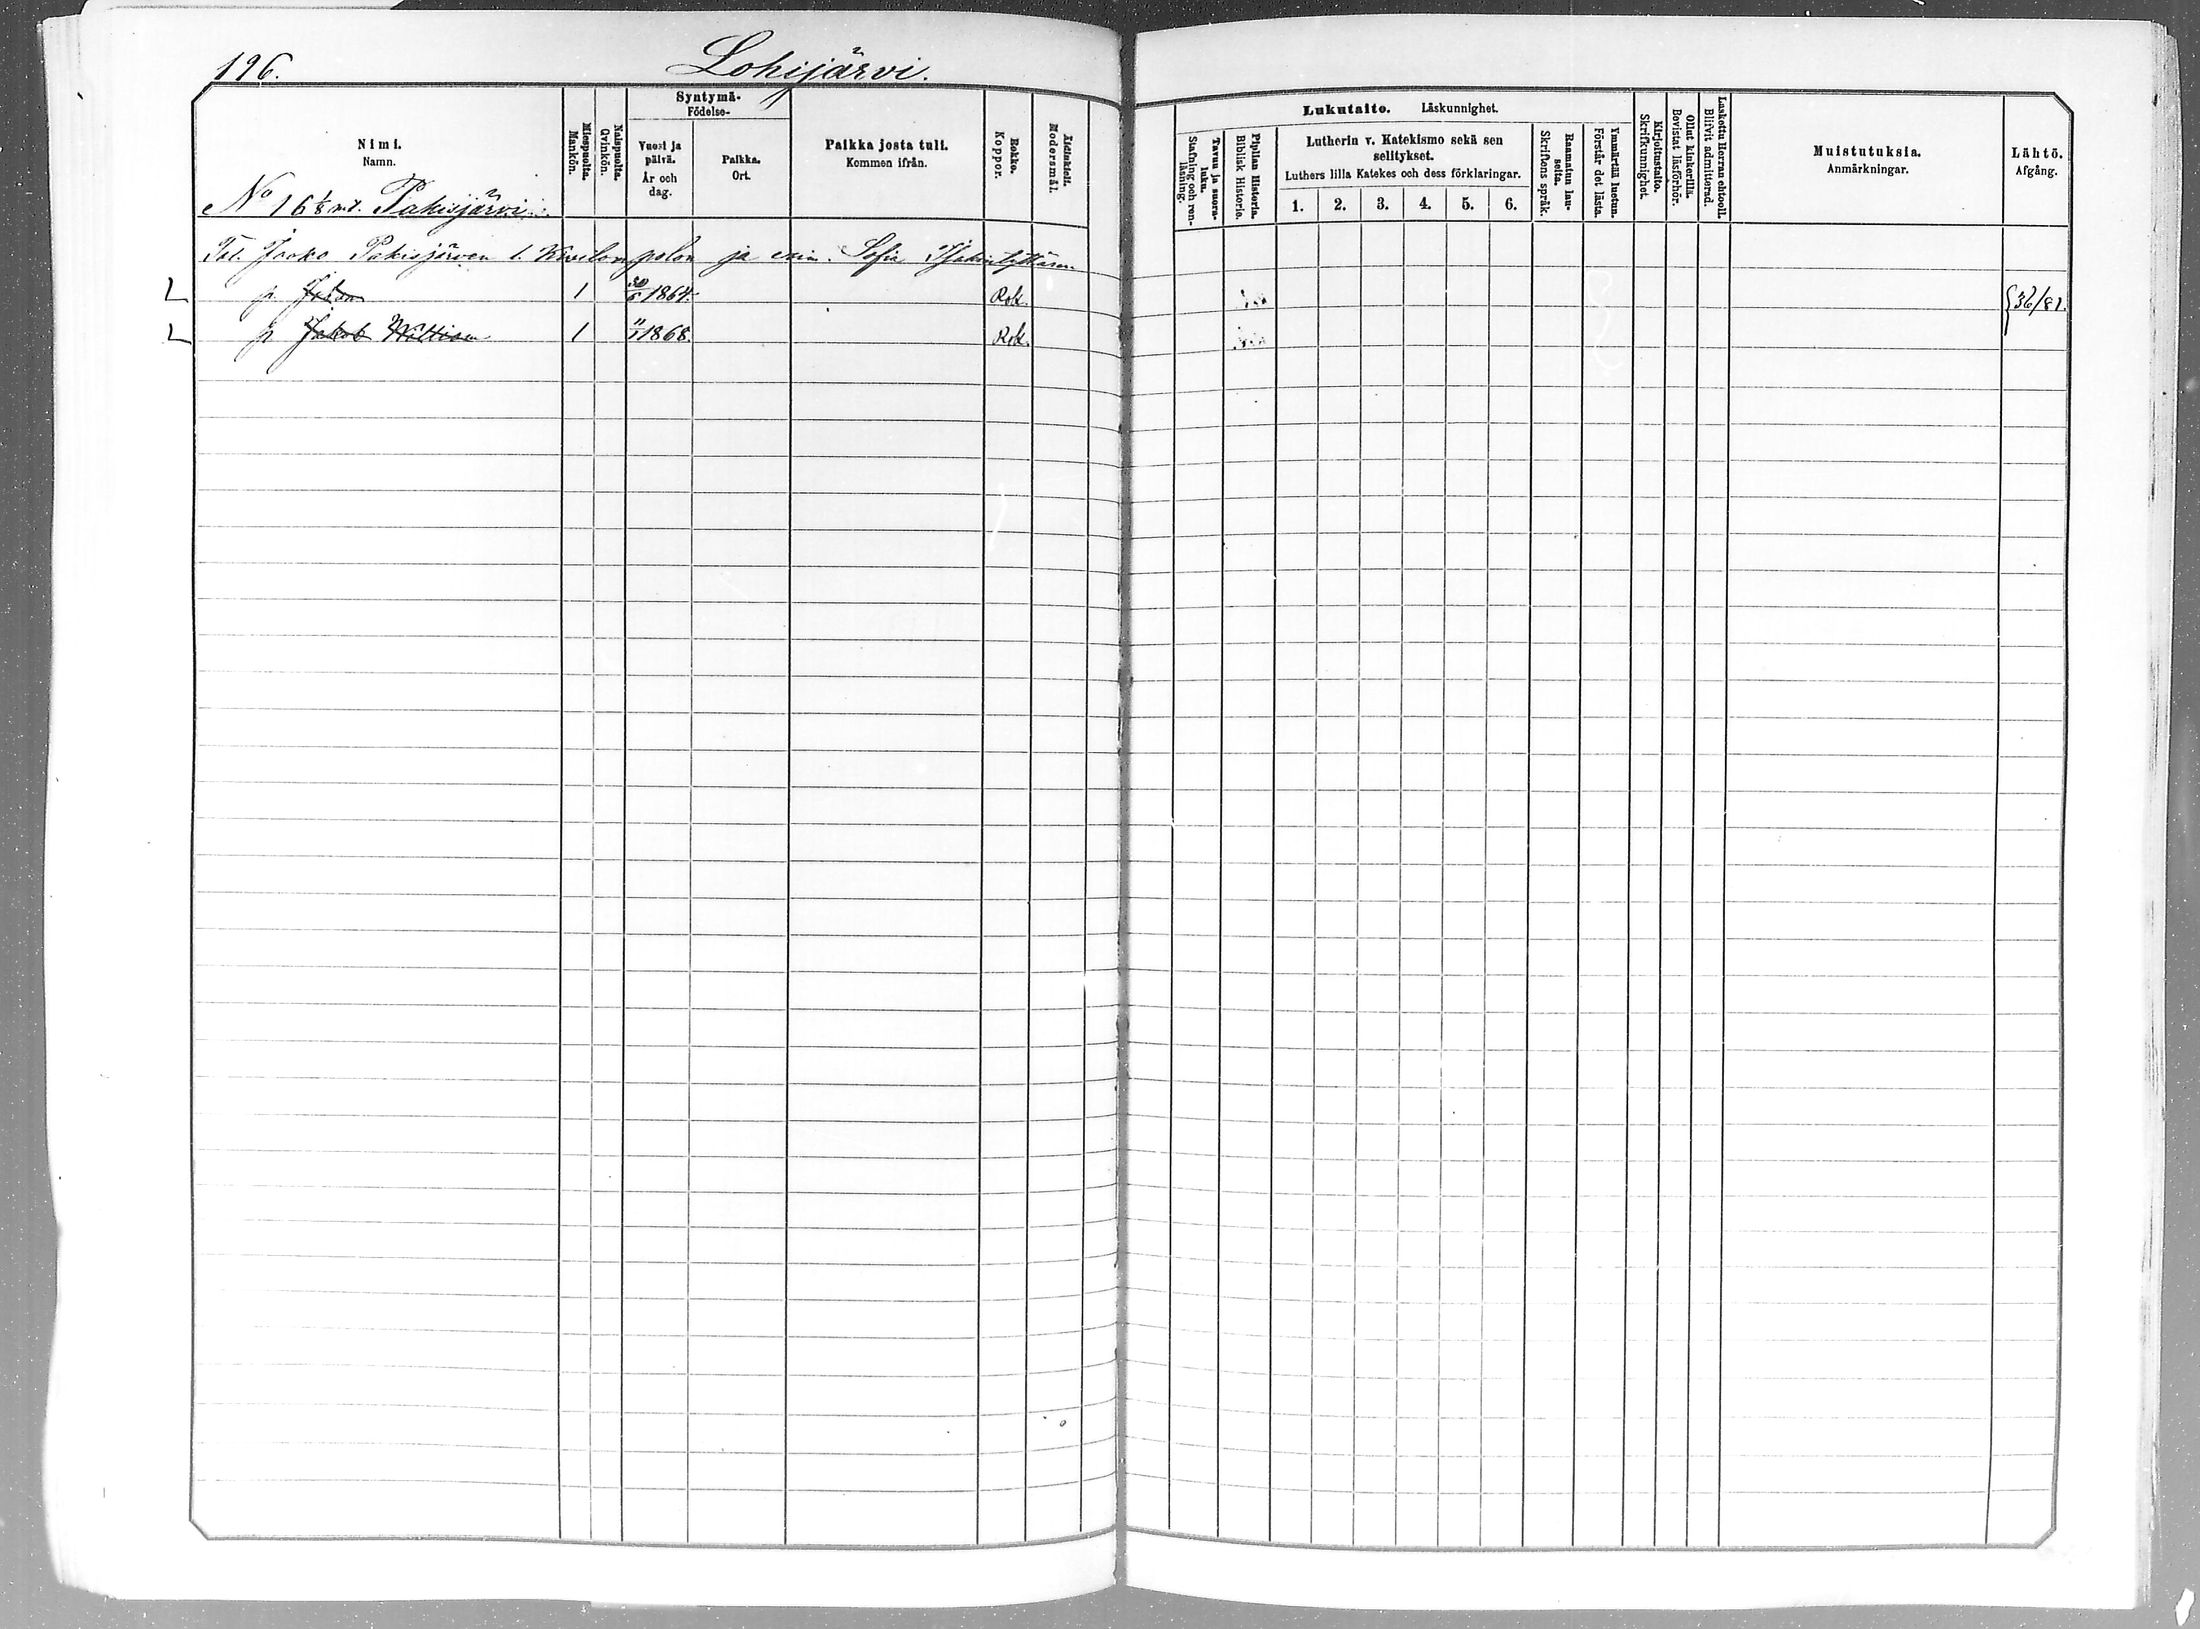 196.
Lohijärvi.
Nimi.
Namn.
Miespuolta.
Mankön.
Naispuolta.
Qvinkön.
Syntymä-
Födelse-
Vuosi ja
päivä.
År och
dag.
Paikka.
Ort.
Paikka josta tuli.
Kommen ifrån.
Rokko.
Koppor.
Äidinkieli.
Modersmål.
Lukutaito. Läskunnighet.
Tavuu ja suora-
luku.
Stafning och ren-
läsning.
Piplian Historia.
Biblisk Historie.
Lutherin v. Katekismo sekä sen
selitykset.
Luthers lilla Katekes och dess förklaringar.
1. 2. 3. 4. 5. 6.
Raamatun lau-
seita.
Skriftens språk.
Ymmärtää luetun.
Förstår det lästa.
Kirjoitustaito.
Skrifkunnighet.
Ollut kinkerillä.
Bevistat läsförhör.
Laskettu Herran ehtooll.
Blifvit admitterad.
Muistutuksia.
Anmärkningar.
Lähtö.
Afgång.
No 16 1/8 mt. Pakisjärvi
Tal. Jaako Pakisjärven l. Kivilompolon ja vaim. Sofia
L p Johan 1 30/6 1864. Rok. 36/81.
L p Jakob 1 11/1 1868. Rok.